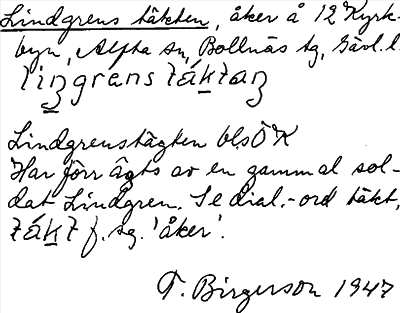 Lindgrens täkten, åker å 12 Kyrk-
byn, Alfta sn, Bollnäs tg, Gävl. l.
liŋgrens täktaŋ
Lindgrenstägten bl.s ÖK
Har förr ägts av en gammal sol-
dat Lindgren. Se dial.-ord täkt,
täkt f. sg. 'åker'.
T. Birgerson 1947